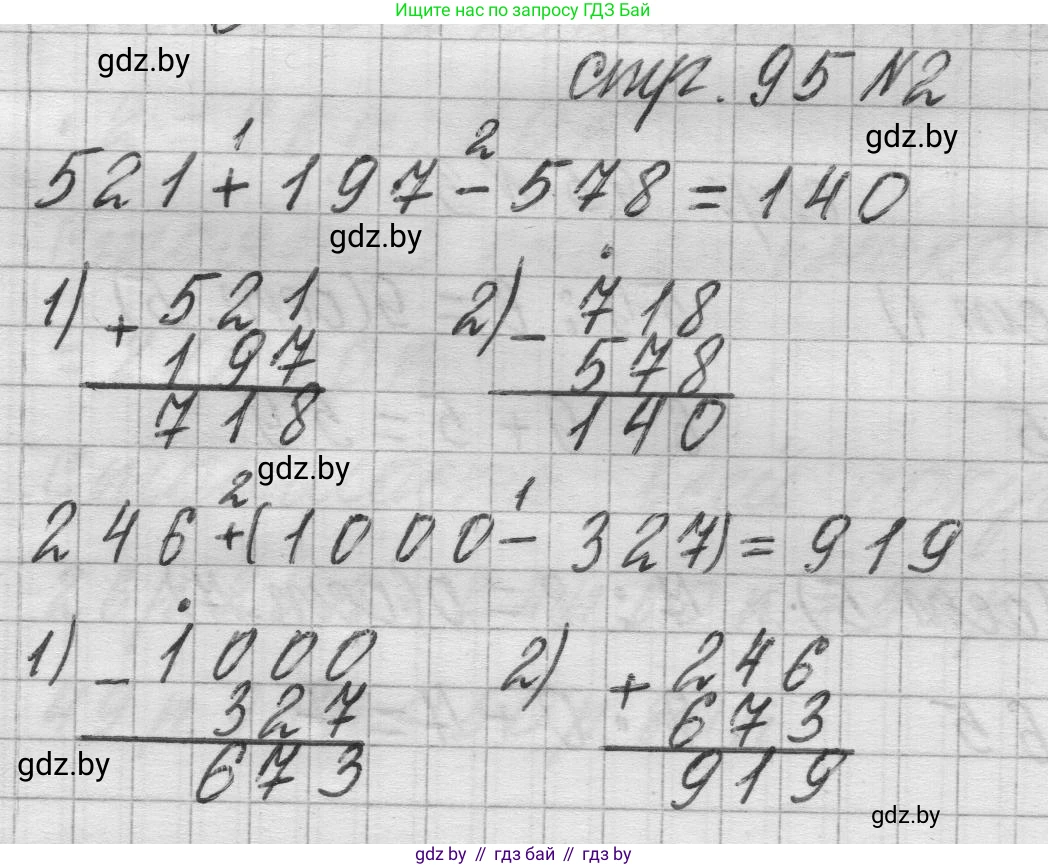 Ищите нас по запросу ГДЗ Бай
gdz.by
стр. 95 №2
gdz.by
1 2
521 + 197 - 578 = 140
gdz.by
1) + 521 2) - 718
197 578
718 140
gdz.by
2 1
246 + (1000 - 327) = 919
1) - 1000 2) + 246
327 673
673 919
gdz.by
gdz.by
gdz by // гдз бай // гдз by